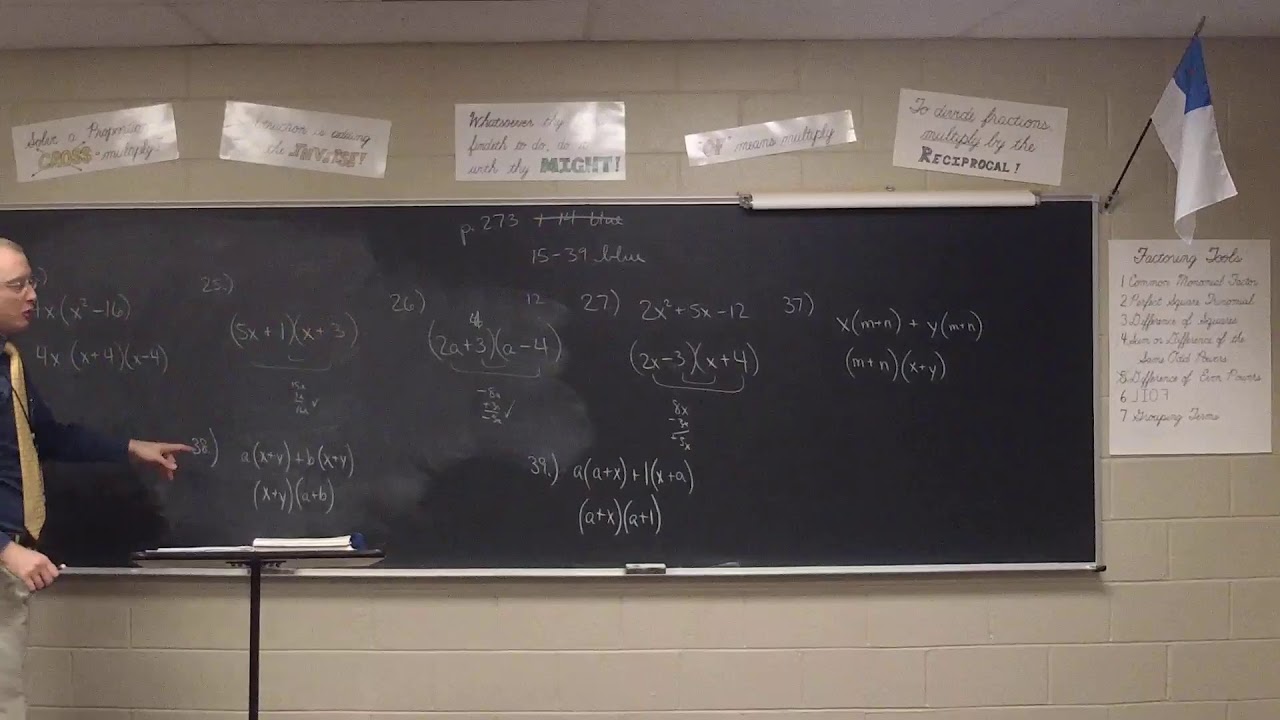 Solve a Proportion
CROSS-multiply!
is
the INVERSE!
Whatsoever thy
findeth to do, do it
with thy MIGHT!
"OF" means multiply
To divide fractions,
multiply by the
RECIPROCAL!
p. 273
15-39 blue
x(x²-16)
4x (x+4)(x-4)
25.)
(5x+1)(x+3)
15x
✓
26)
12
(2a+3)(a-4)
-8a
+3a
-5a ✓
27) 2x²+5x-12
(2x-3)(x+4)
8x
-3x
+5x
37) x(m+n) + y(m+n)
(m+n)(x+y)
38.) a(x+y)+b(x+y)
(x+y)(a+b)
39.) a(a+x)+1(x+a)
(a+x)(a+1)
Factoring Tools
1 Common Monomial Factor
2 Perfect Square Trinomial
3 Difference of Squares
4 Sum or Difference of the
Same Odd Powers
5 Difference of Even Powers
6
7 Grouping Terms